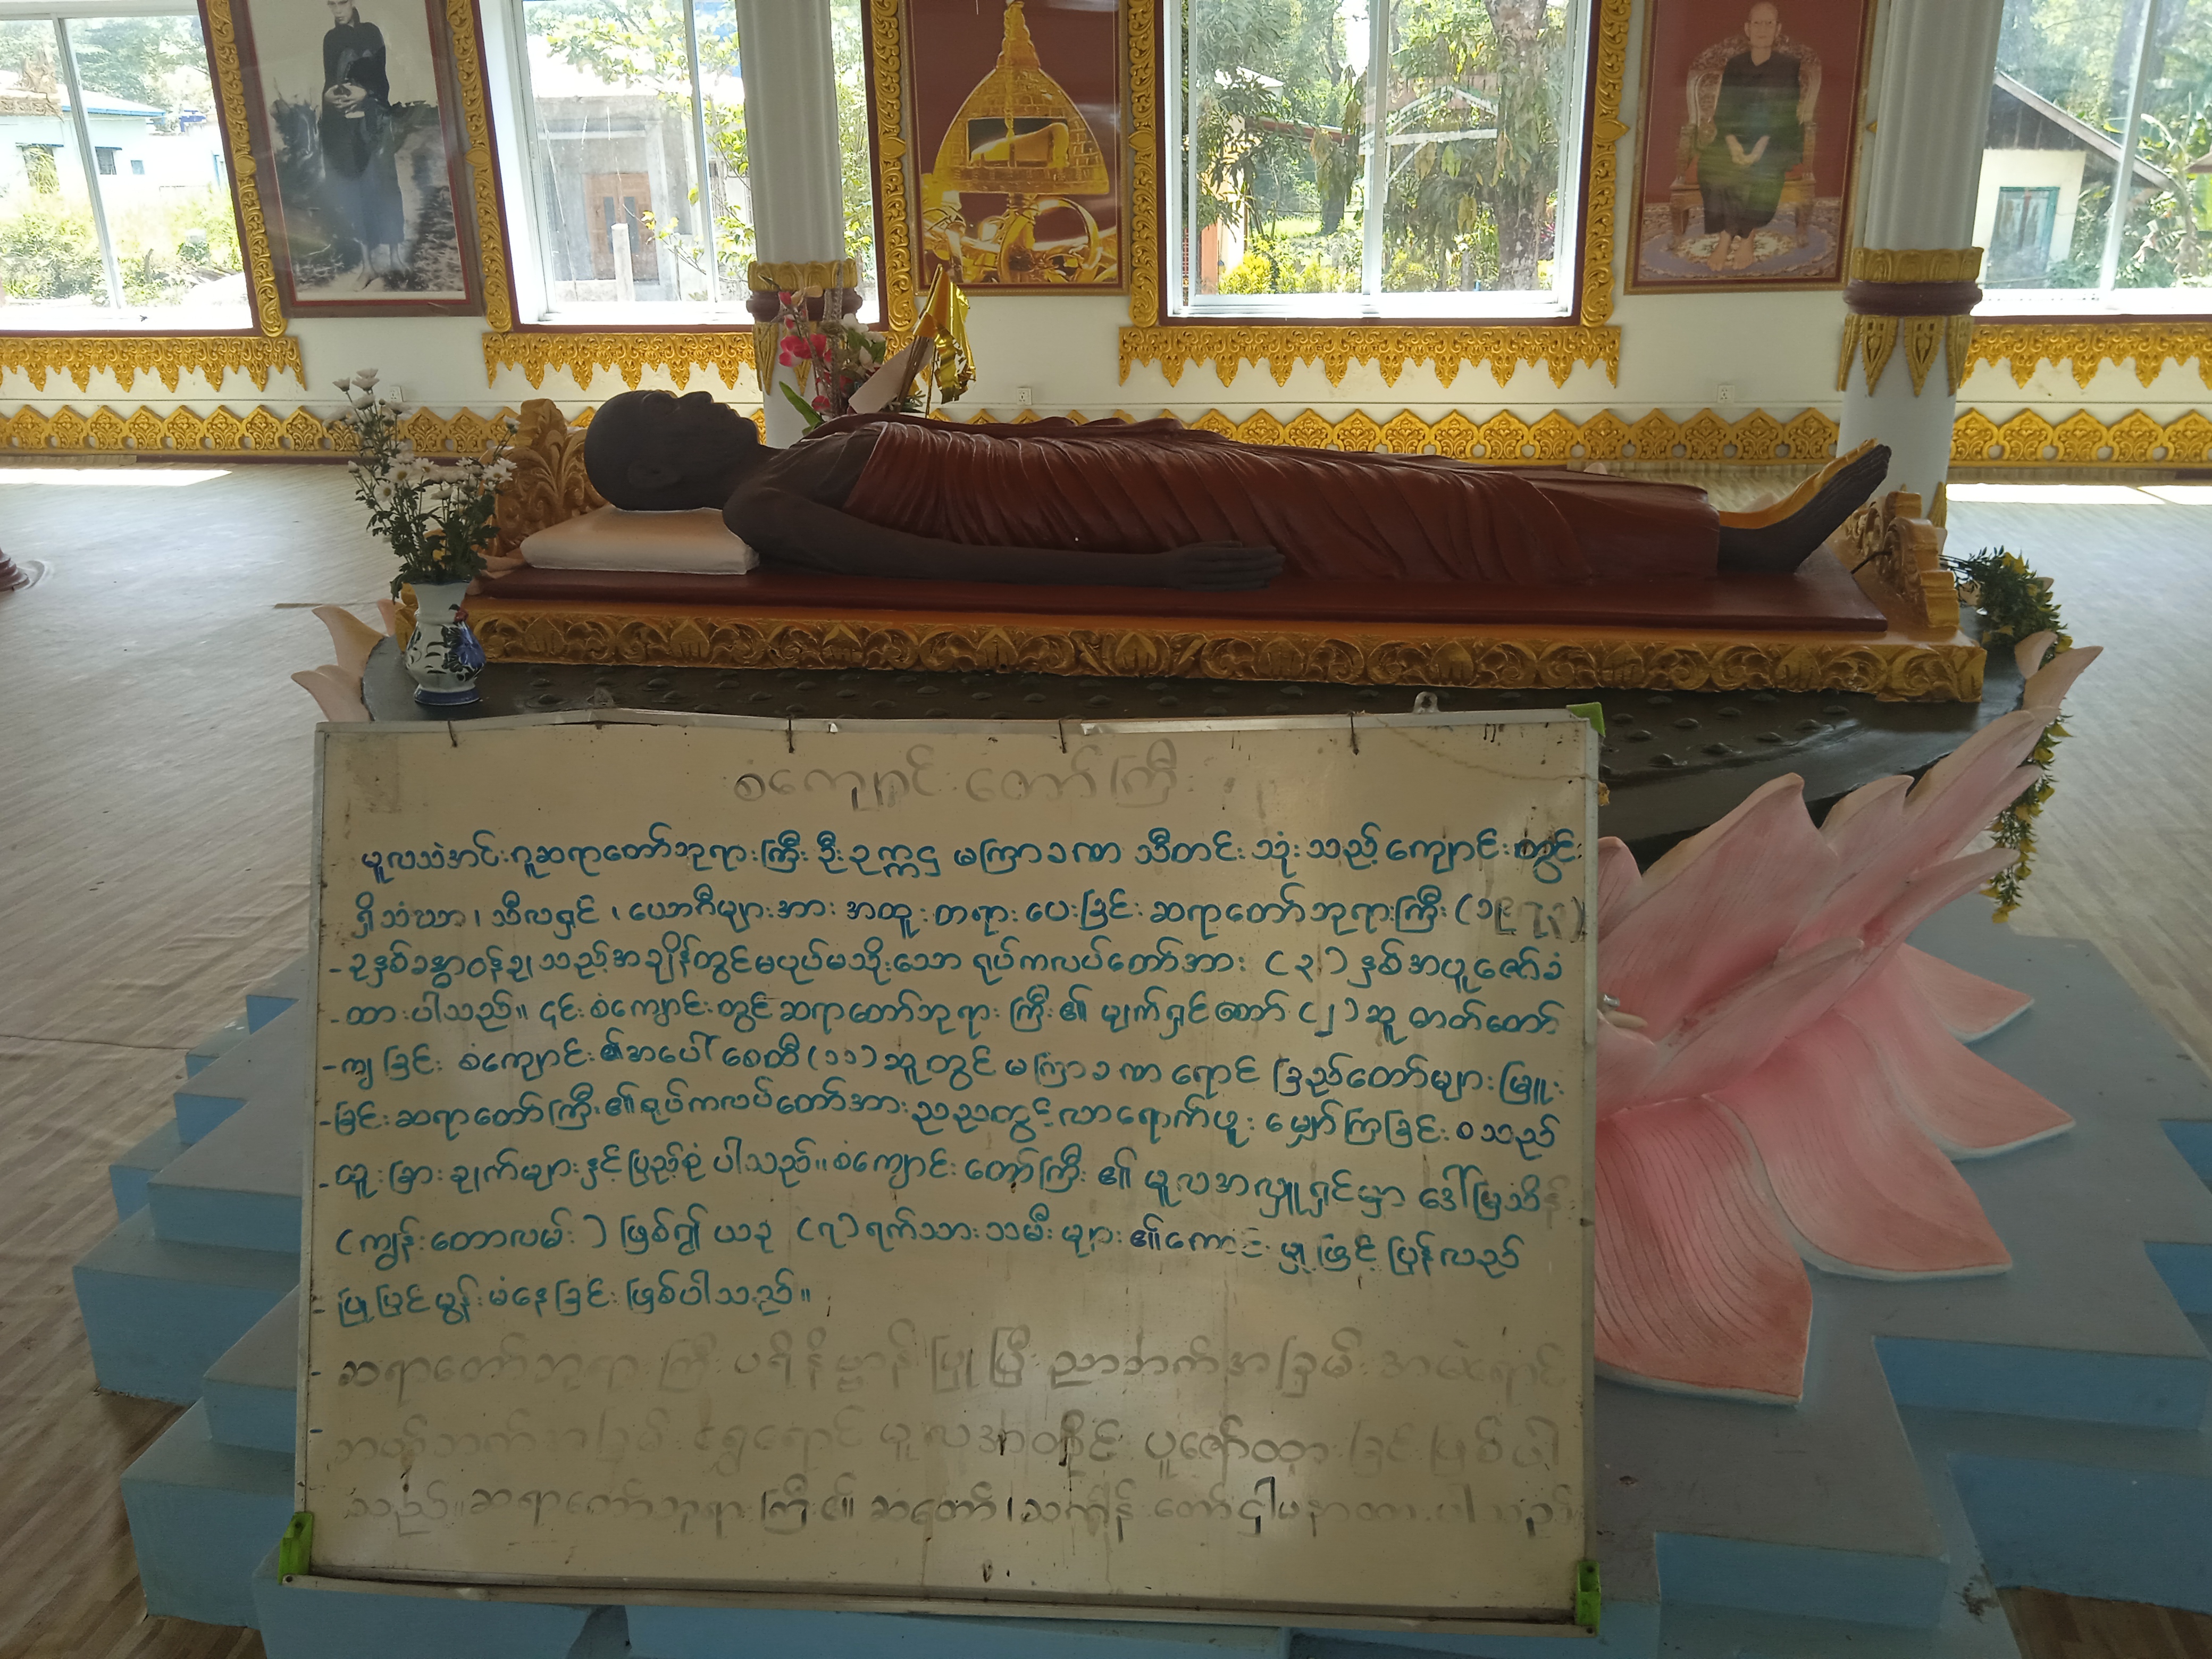 စံကျောင်းတော်ကြီး
မူလသံအင်းဂူဆရာတော်ဘုရားကြီး ဦးဥက္ကဋ္ဌ မကြာခဏ သီတင်းသုံးသည့် ကျောင်းတွင်
ရှိသံဃာ၊ သီလရှင်၊ ယောဂီများအား အထူးတရားပေးခြင်း ဆရာတော်ဘုရားကြီး
- ခုနှစ်ခန္ဓာဝန်ချသည့်အချိန်တွင်မပုပ်မသိုးသော ရုပ်ကလပ်တော်အား (၃) နှစ်အပူဇော်ခံ
- ထားပါသည်။ ၎င်းစံကျောင်းတွင်ဆရာတော်ဘုရားကြီး၏ မျက်ရှင်တော် (၂) ဆူ ဓာတ်တော်
- ကျခြင်း စံကျောင်း၏အပေါ် စေတီ (၁၁) ဆူတွင် မကြာခဏ ရောင်ခြည်တော်များ ဖြူး
- ခြင်း ဆရာတော်ကြီး၏ရုပ်ကလပ်တော်အား ညညတွင့်လာရောက်ဖူးမျှော်ကြခြင်း စသည်
- ထူးခြားချက်များနှင့်ပြည့်စုံပါသည်။ စံကျောင်းတော်ကြီး၏ မူလအလှူရှင်မှာ ဒေါ်မြသိန်း
(ကျွန်းတောလမ်း) ဖြစ်၍ ယခု (၇) ရက်သားသမီးများ၏ကောင်းမှုဖြင့် ပြန်လည်
- ပြုပြင်မွမ်းမံနေခြင်း ဖြစ်ပါသည်။
- ဆရာတော်ဘုရားကြီး ပရိနိဗ္ဗာန်ပြုပြီး ညာဘက်အခြမ်း အမဲရောင်
- ဘယ်ဘက်အခြမ်း ရွှေရောင် မူလအတိုင်း ပူဇော်ထားခြင်းဖြစ်ပါ
သည်။ ဆရာတော်ဘုရားကြီး၏ ဆံတော်၊ သင်္ကန်းတော် ဌာပနာထားပါသည်